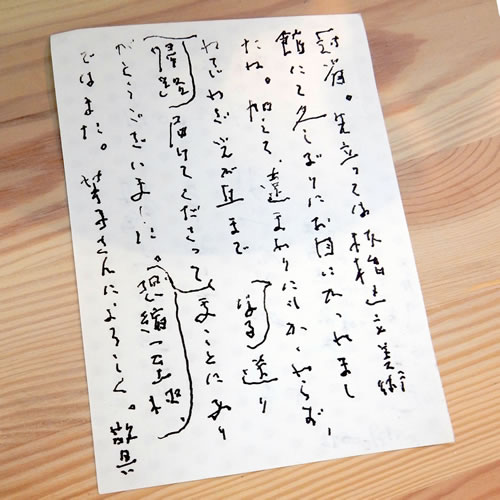 冠省。先立っては板橋区立美術
館にて久しぶりにお目にかかれまし
たね。加えて、遠まわりにもかかわらず、
わざわざ光が丘まで送り
帰路
届けてくださって、まことにあり
がとうございました。恐縮至極。
ではまた。子さんによろしく。敬具